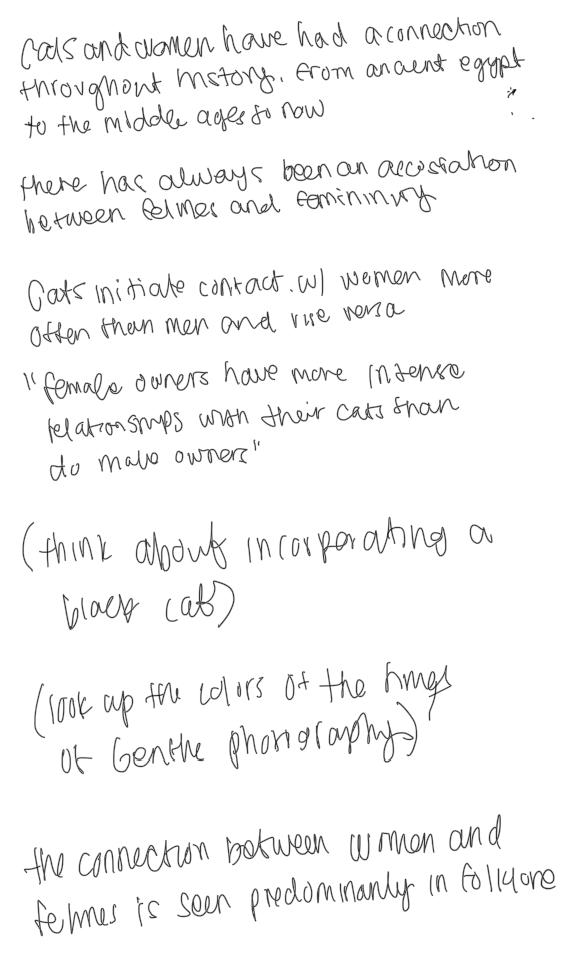 Cats and women have had a connection
throughout history. from ancient egypt
to the middle ages to now
there has always been an accosiation
between felines and femininity
Cats initiate contact w/ women more
often than men and vise versa
"female owners have more intense
relationships with their cats than
do male owners"
(think about incorporating a
black cat)
(look up the colors of the
of Genthe photography)
the connection between women and
felines is seen predominanly in folklore